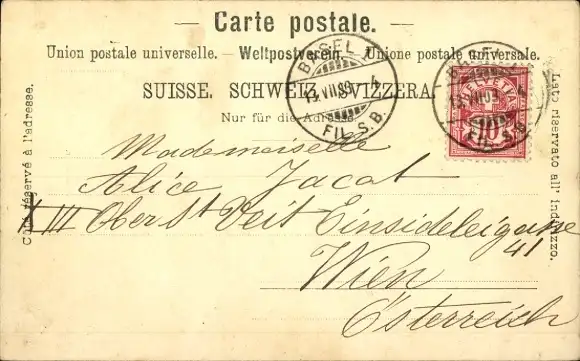 — Carte postale. —
Union postale universelle. — Weltpostverein. — Unione postale universale.
SUISSE. SCHWEIZ. SVIZZERA.
Nur für die Adresse.
Côté réservé à l'adresse.
Lato riservato all' indirizzo.
BASEL
4
FIL. S.B.
HELVETIA
10
BASEL
4
FIL. S.B.
Mademoiselle
Alice Jacot
XIII Ober St Veit Einsideleigasse
41
Wien
Österreich